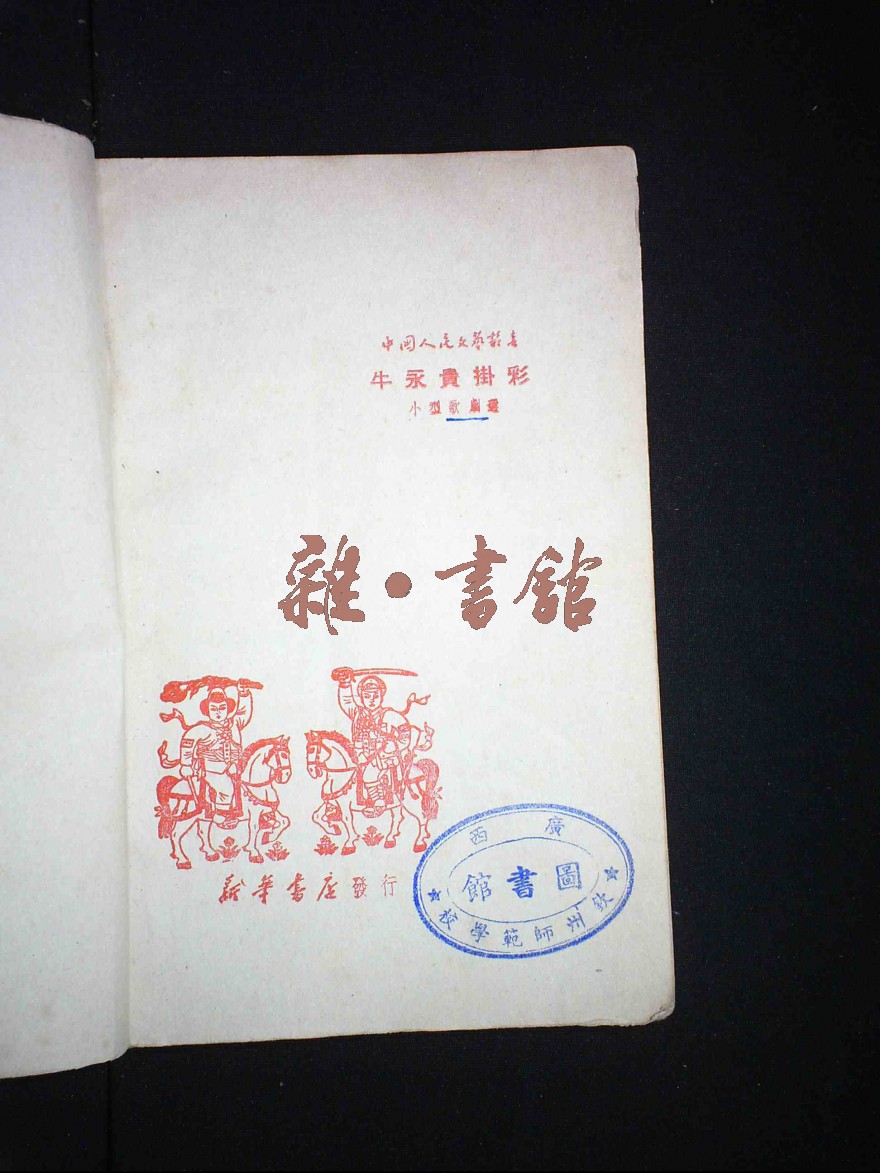 中國人民文藝叢書
牛永貴掛彩
小型歌劇選
雜·書館
新華書店發行
廣西
圖書館
欽州師範學校